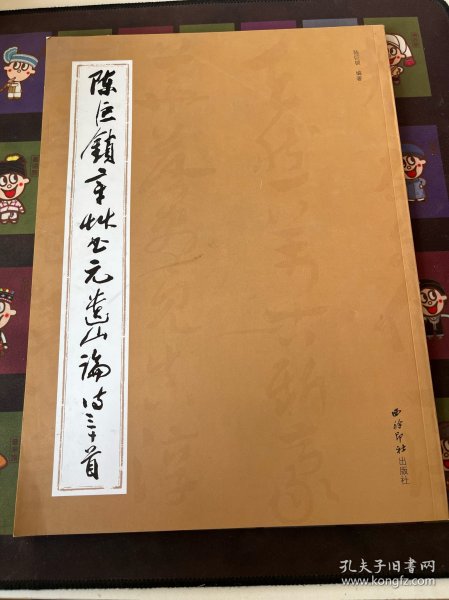 陈巨锁章草书元遗山论诗三十首
陈巨锁 编著
西泠印社出版社
孔夫子旧书网
www.kongfz.com